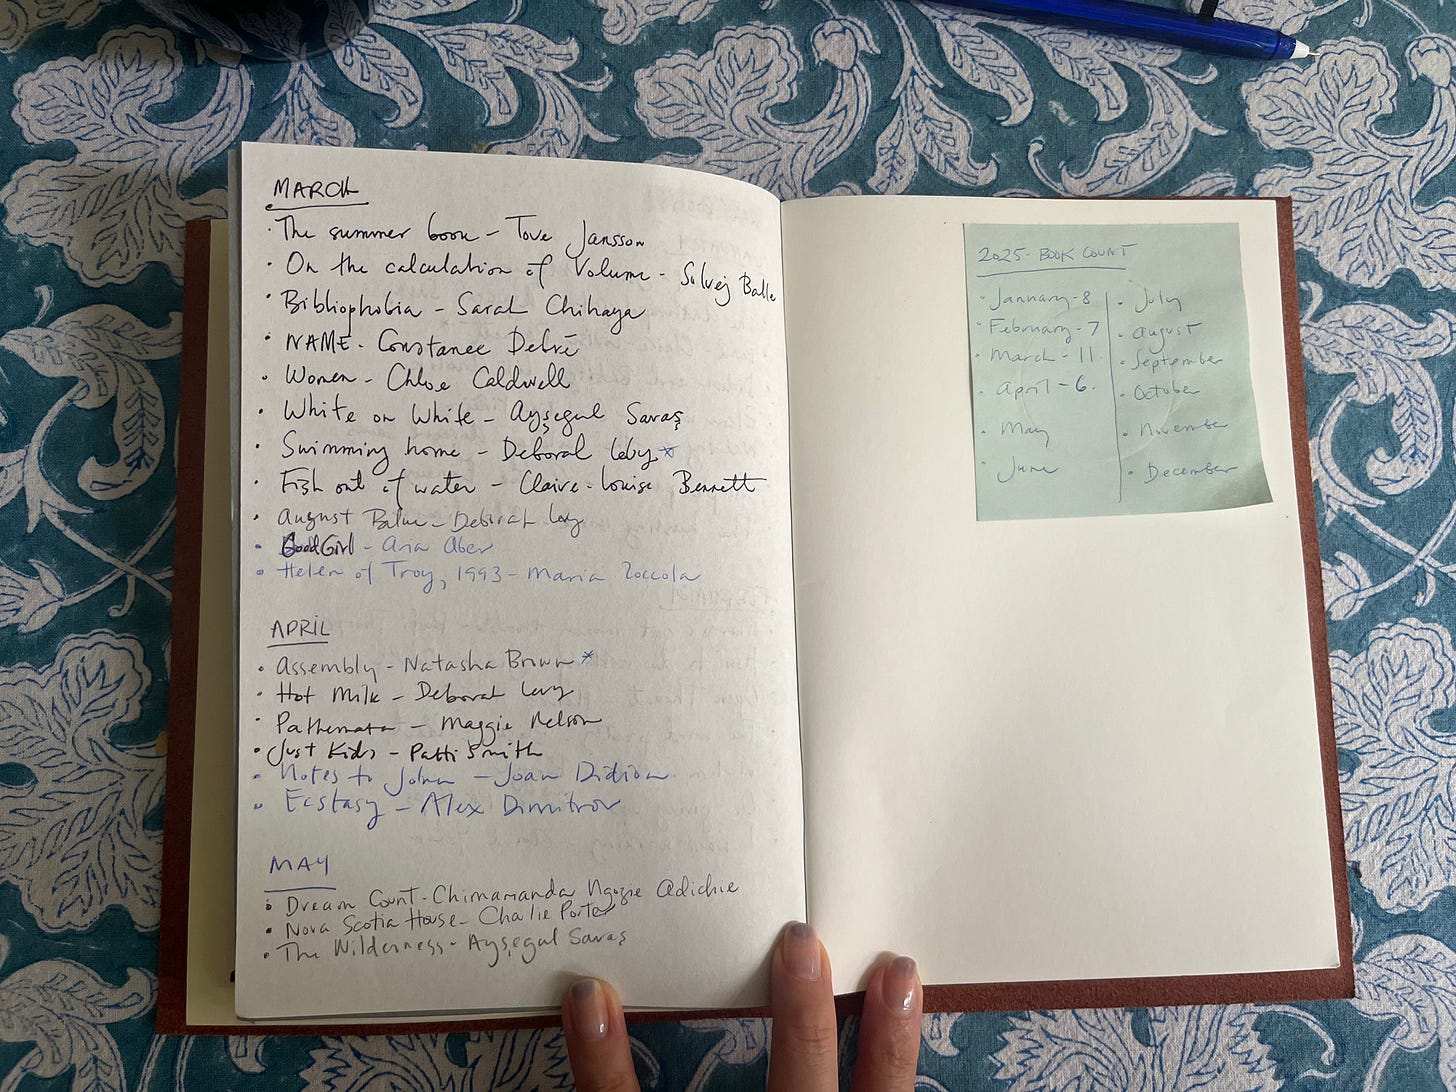 MARCH
· The summer book - Tove Jansson
· On the calculation of Volume - Solvej Balle
· Bibliophobia - Sarah Chihaya
· NAME - Constance Debré
· Women - Chloe Caldwell
· White on White - Ayşegul Savaş
· Swimming home - Deborah Levy *
· Fish out of water - Claire-Louise Bennett
· August Blue - Deborah Levy
· Good Girl - Ana Aber
· Helen of Troy, 1993 - Maria Zoccola
APRIL
· Assembly - Natasha Brown *
· Hot Milk - Deborah Levy
· Pathemata - Maggie Nelson
· Just Kids - Patti Smith
· Notes to John - Joan Didion
· Ecstasy - Alex Dimitrov
MAY
· Dream Count - Chimamanda Ngozie Adichie
· Nova Scotia House - Charlie Porter
· The Wilderness - Ayşegul Savaş
2025 - BOOK COUNT
· January - 8
· February - 7
· March - 11.
· April - 6.
· May
· June
· July
· August
· September
· October
· November
· December